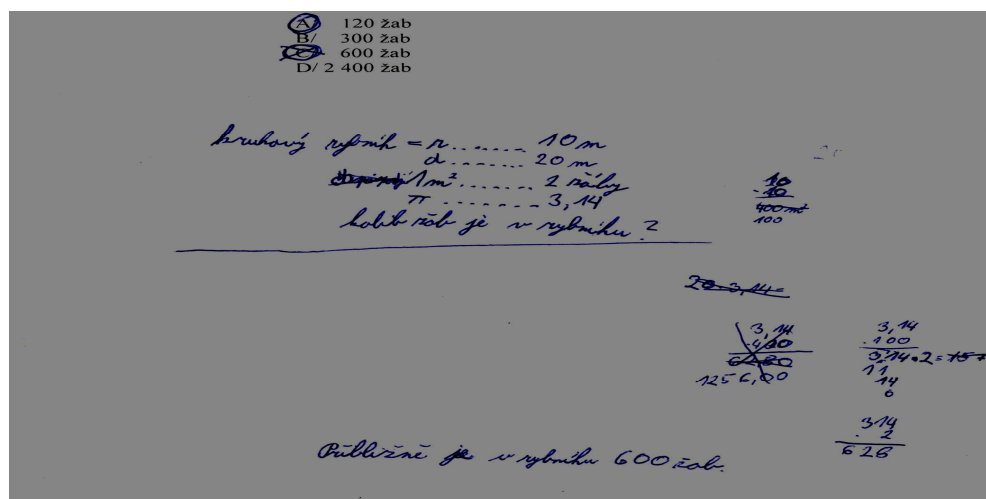 A/ 120 žab
B/ 300 žab
C/ 600 žab
D/ 2 400 žab
kruhový rybník = r ....... 10 m
d ........ 20 m
1 m² ....... 2 žáby
π ....... 3,14
kolik žab je v rybníku?
10
. 10
400 m²
100
20 . 3,14 =
3,14
. 400
1256,00
3,14
. 100
314 . 2 = 157
11
14
0
314
. 2
628
Přibližně je v rybníku 600 žab.